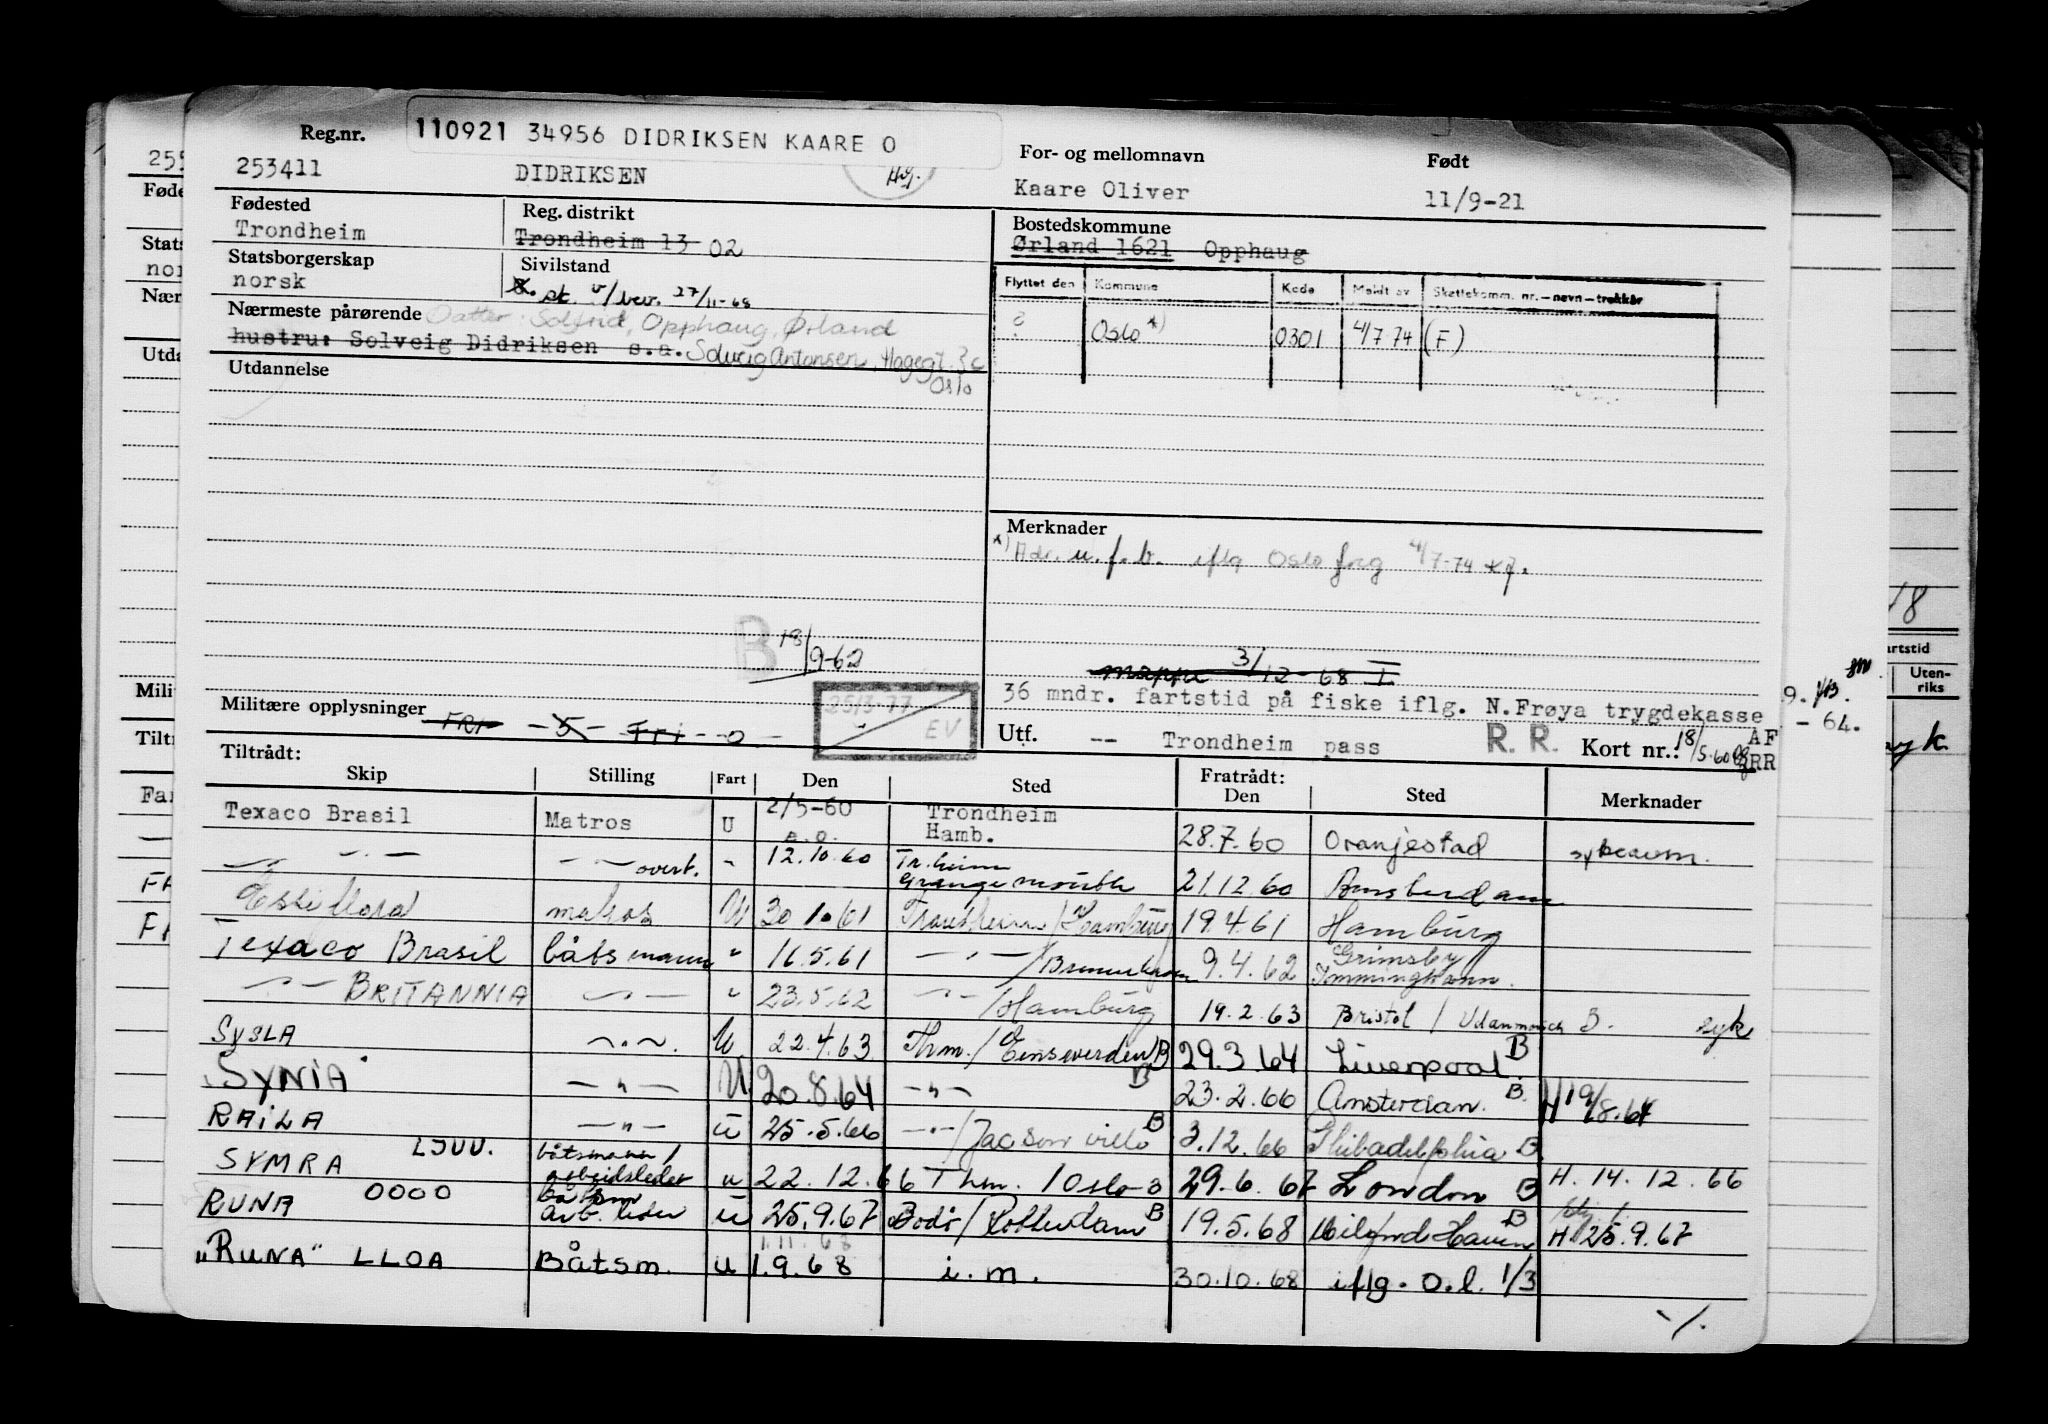 Reg.nr.
110921 34956 DIDRIKSEN KAARE O
For- og mellomnavn
Født
253411
DIDRIKSEN
Kaare Oliver
11/9-21
Fødested
Reg. distrikt
Bostedskommune
Trondheim
Trondheim 13 02
Ørland 1621 Opphaug
Statsborgerskap
Sivilstand
norsk
27/11-68
Flyttet den Kommune Kode Meldt av Skattekomm. nr.–navn–trekkår
? Oslo *) 0301 4/7 74 (F)
Nærmeste pårørende Datter: Solfrid, Opphaug, Ørland
hustru: Solveig Didriksen s.a. Solveig Antonsen, Hagegt. 3c
Oslo
Utdannelse
Merknader
*) Adr. u.f.b. iflg Oslo frg 4/7-74
B 18/9-62
mappe 3/12-68 I
36 mndr. fartstid på fiske iflg. N.Frøya trygdekasse
Militære opplysninger
FRI -5- Fri -0-
25/3-77
EV
Utf. -- Trondheim pass R. R. Kort nr.: 18/5.60
AF
RR
Tiltrådt:
Fratrådt:
Skip Stilling Fart Den Sted Den Sted Merknader
Texaco Brasil Matros U 2/5-60 a.o. Trondheim Hamb. 28.7.60 Oranjestad
— " — — " — overt. " 12.10.60 Tr.heim Grangemouth 21.12.60 Amsterdam
matros U 30.1.61 Trondheim/Hamburg 19.4.61 Hamburg
Texaco Brasil båtsmann " 16.5.61 — " —/Bremerhaven 9.4.62 Grimsby Immingham.
— " — BRITANNIA — " — " 23.5.62 — " —/Hamburg 19.2.63 Bristol / B. syk
SYSLA — " — U 22.4.63 Thm./Einswarden B 29.3.64 Liverpool B
"SYNIA" — " — U 20.8.64 — " — B 23.2.66 Amsterdam. B. H 19/8.64
RAILA — " — u 25.5.66 — " —/Jacsonville B 3.12.66 Philadelphia B
SYMRA LJUU. båtsmann/arbeidsleder u 22.12.66 Thm./Oslo B 29.6.67 London B H. 14.12.66
RUNA 0000 båtsm arb. leder u 25.9.67 Bodø/Rotterdam B 19.5.68 Milford Haven B H. 25.9.67
1.11.68
"RUNA" LLOA Båtsm. u 1.9.68 i.m. 30.10.68 iflg. o.l. 1/3
./.